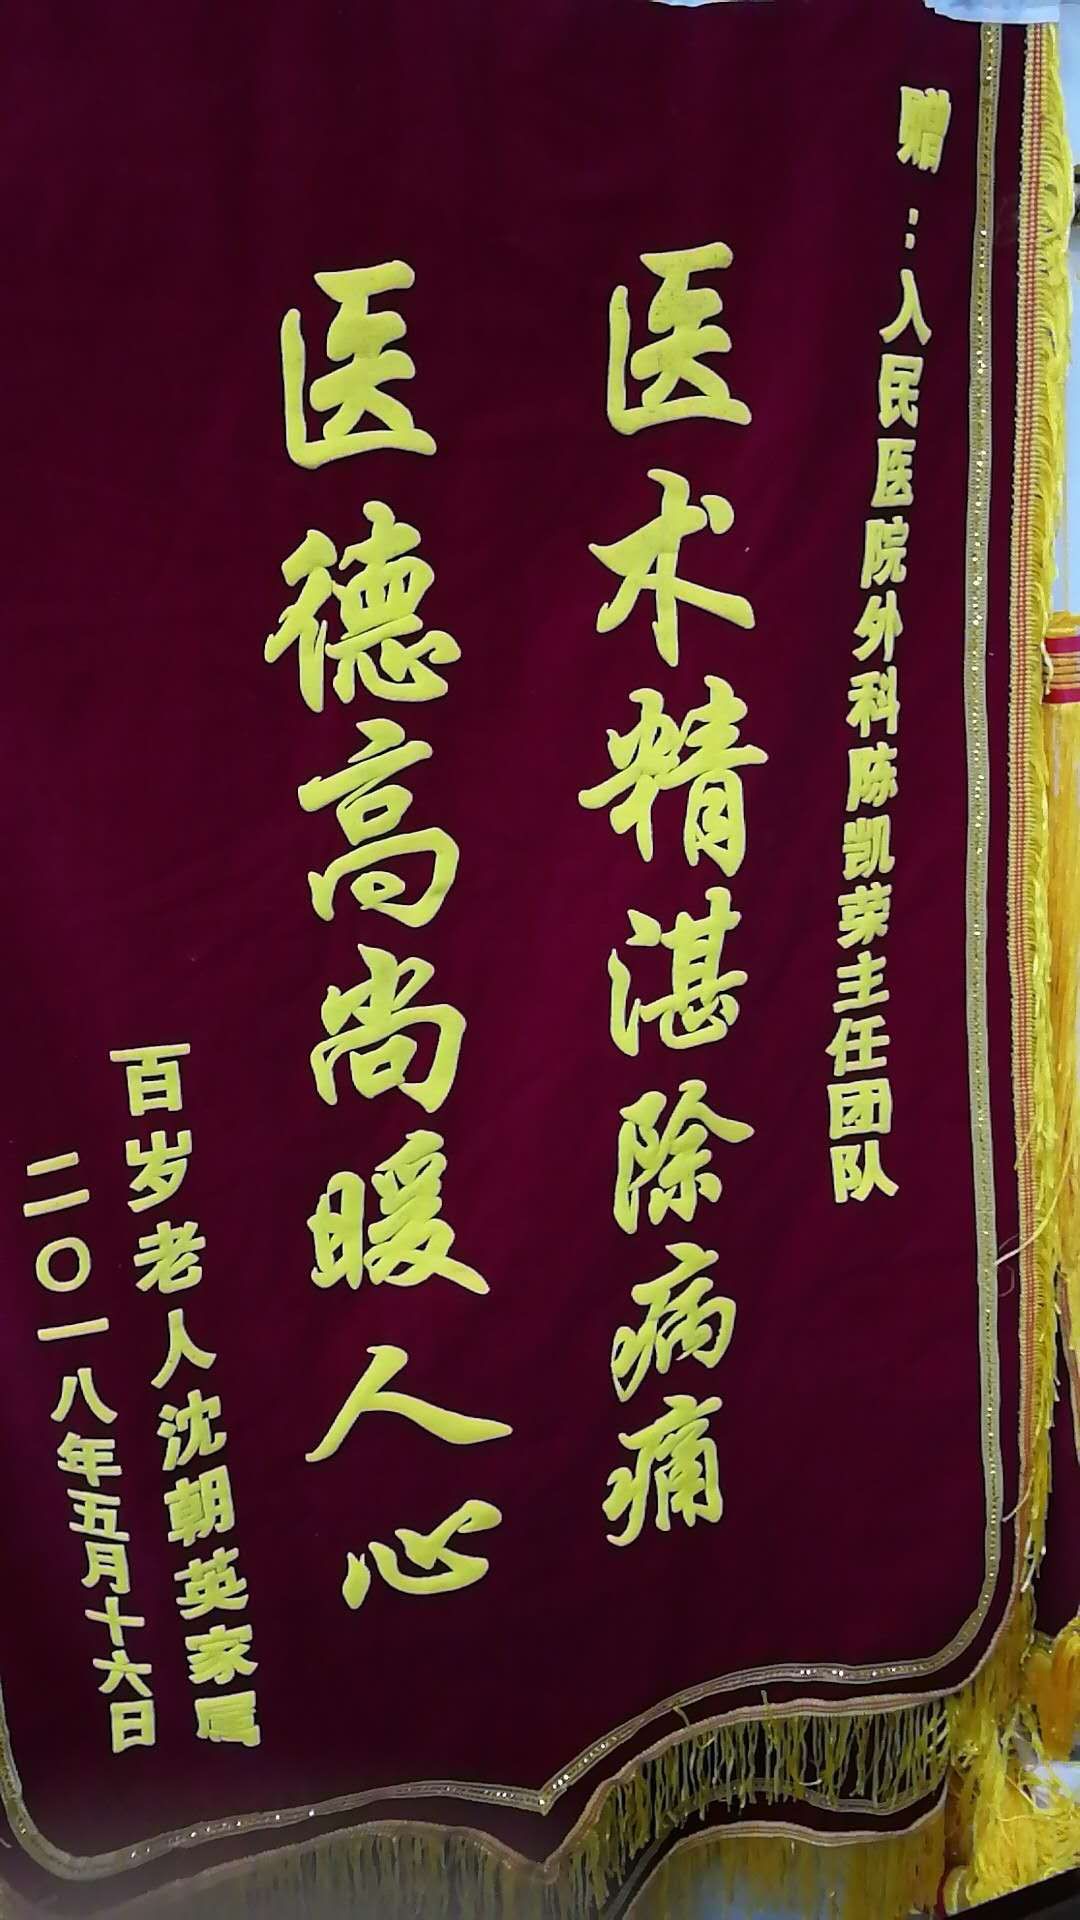 赠：人民医院外科陈凯荣主任团队
医术精湛除病痛
医德高尚暖人心
百岁老人沈朝英家属
二〇一八年五月十六日